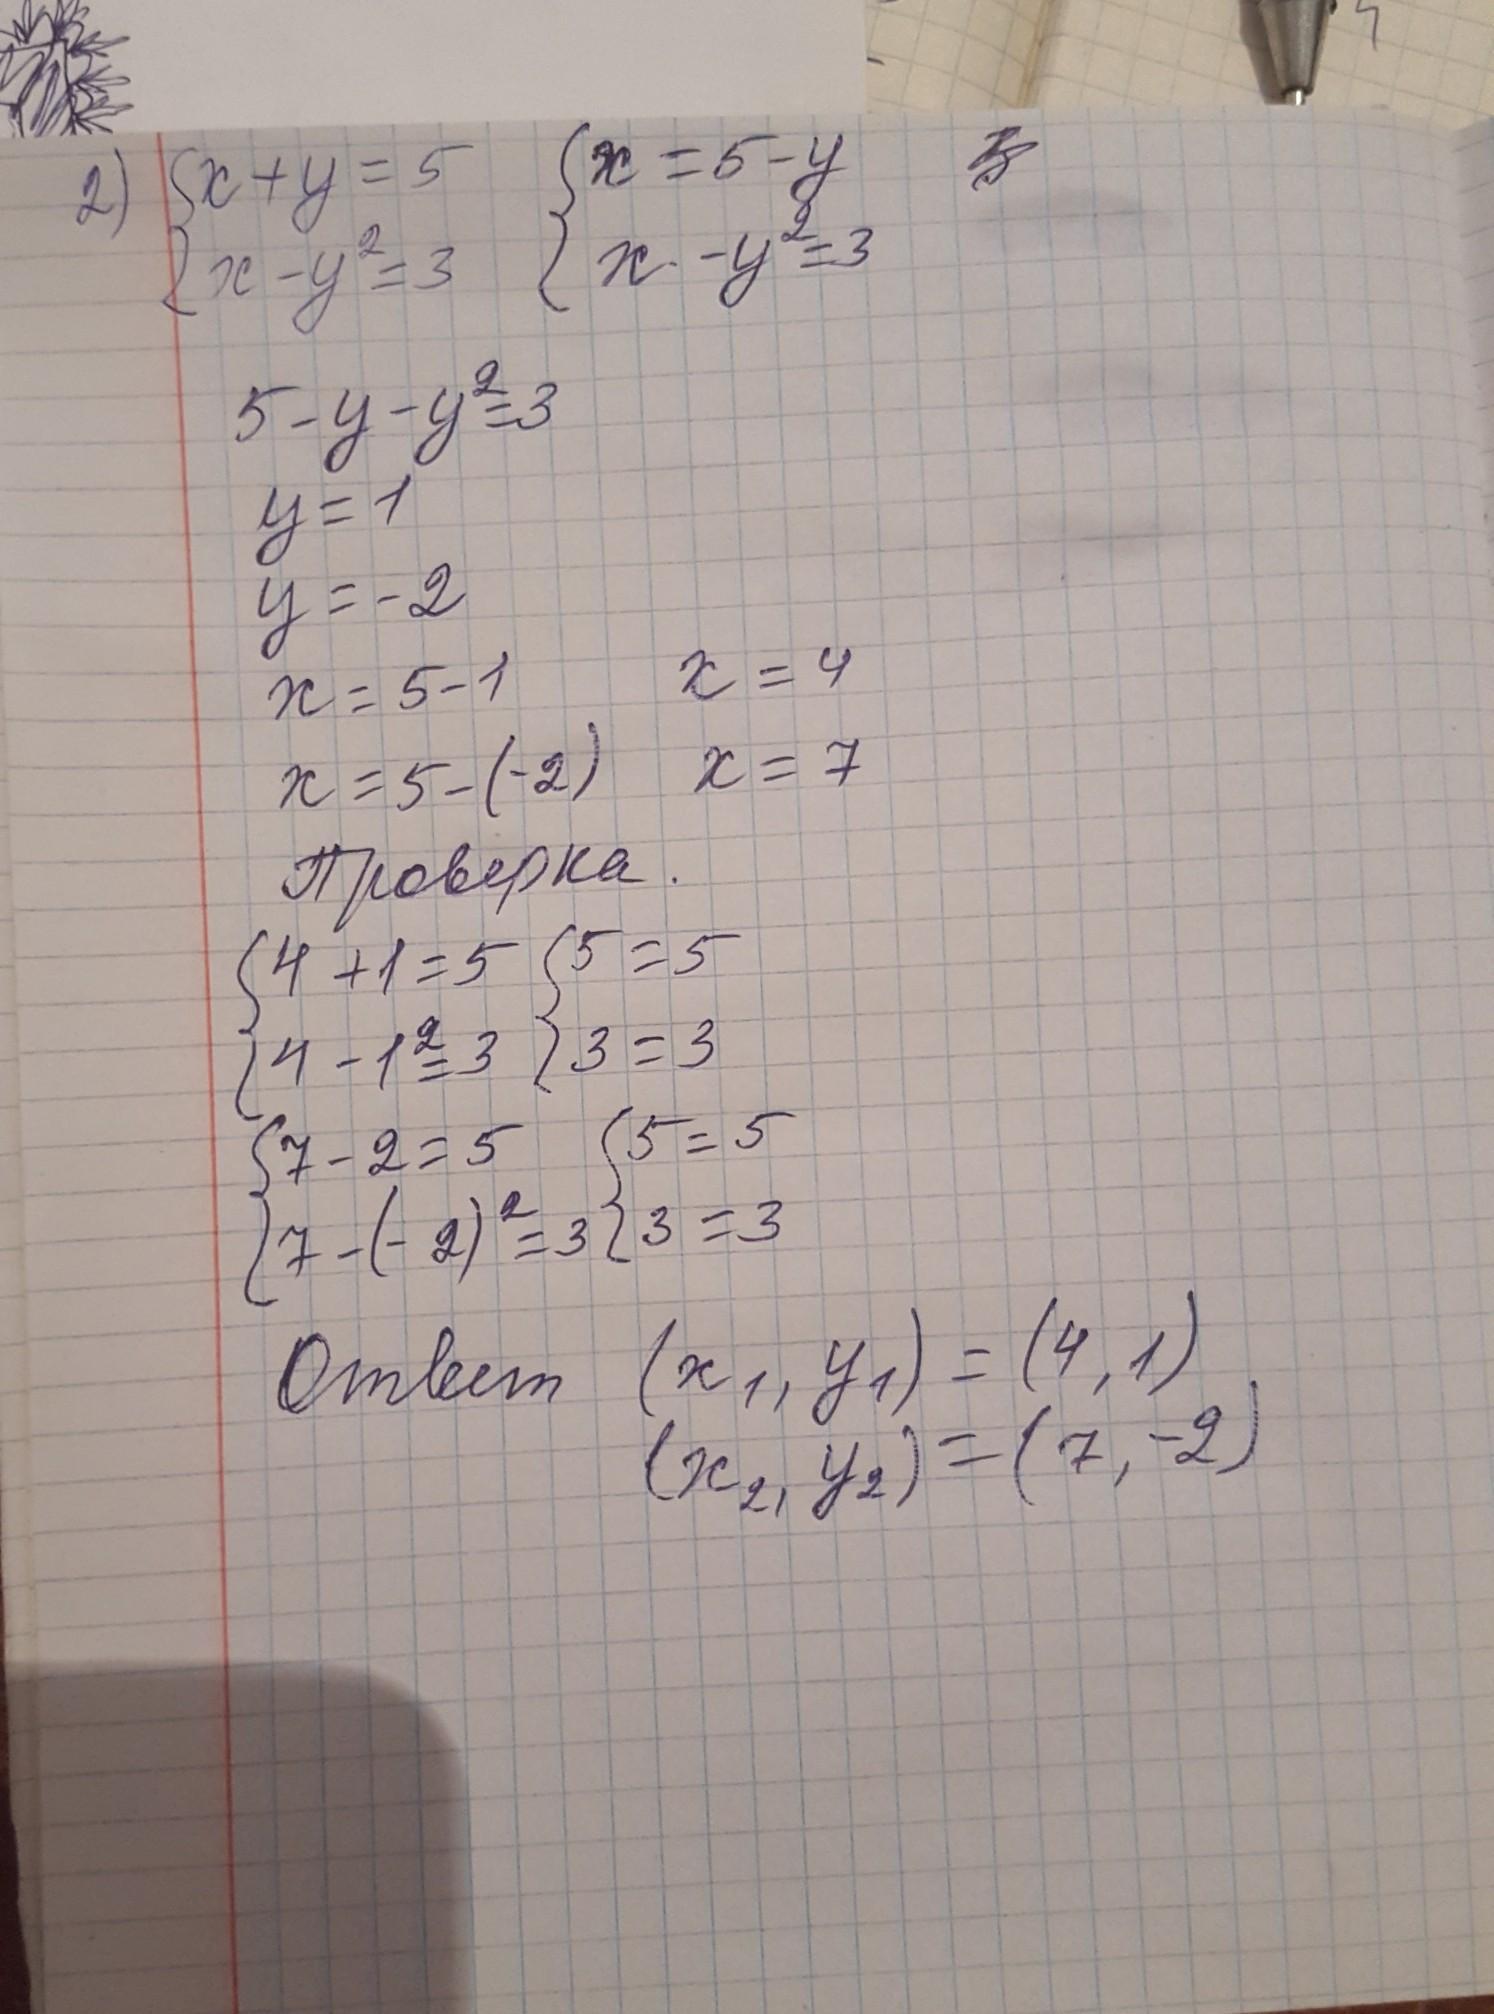 2) { x + y = 5 { x = 5 - y
{ x - y² = 3 { x - y² = 3
5 - y - y² = 3
y = 1
y = -2
x = 5 - 1 x = 4
x = 5 - (-2) x = 7
Проверка.
{ 4 + 1 = 5 { 5 = 5
{ 4 - 1² = 3 { 3 = 3
{ 7 - 2 = 5 { 5 = 5
{ 7 - (-2)² = 3 { 3 = 3
Ответ (x₁, y₁) = (4, 1)
(x₂, y₂) = (7, -2)